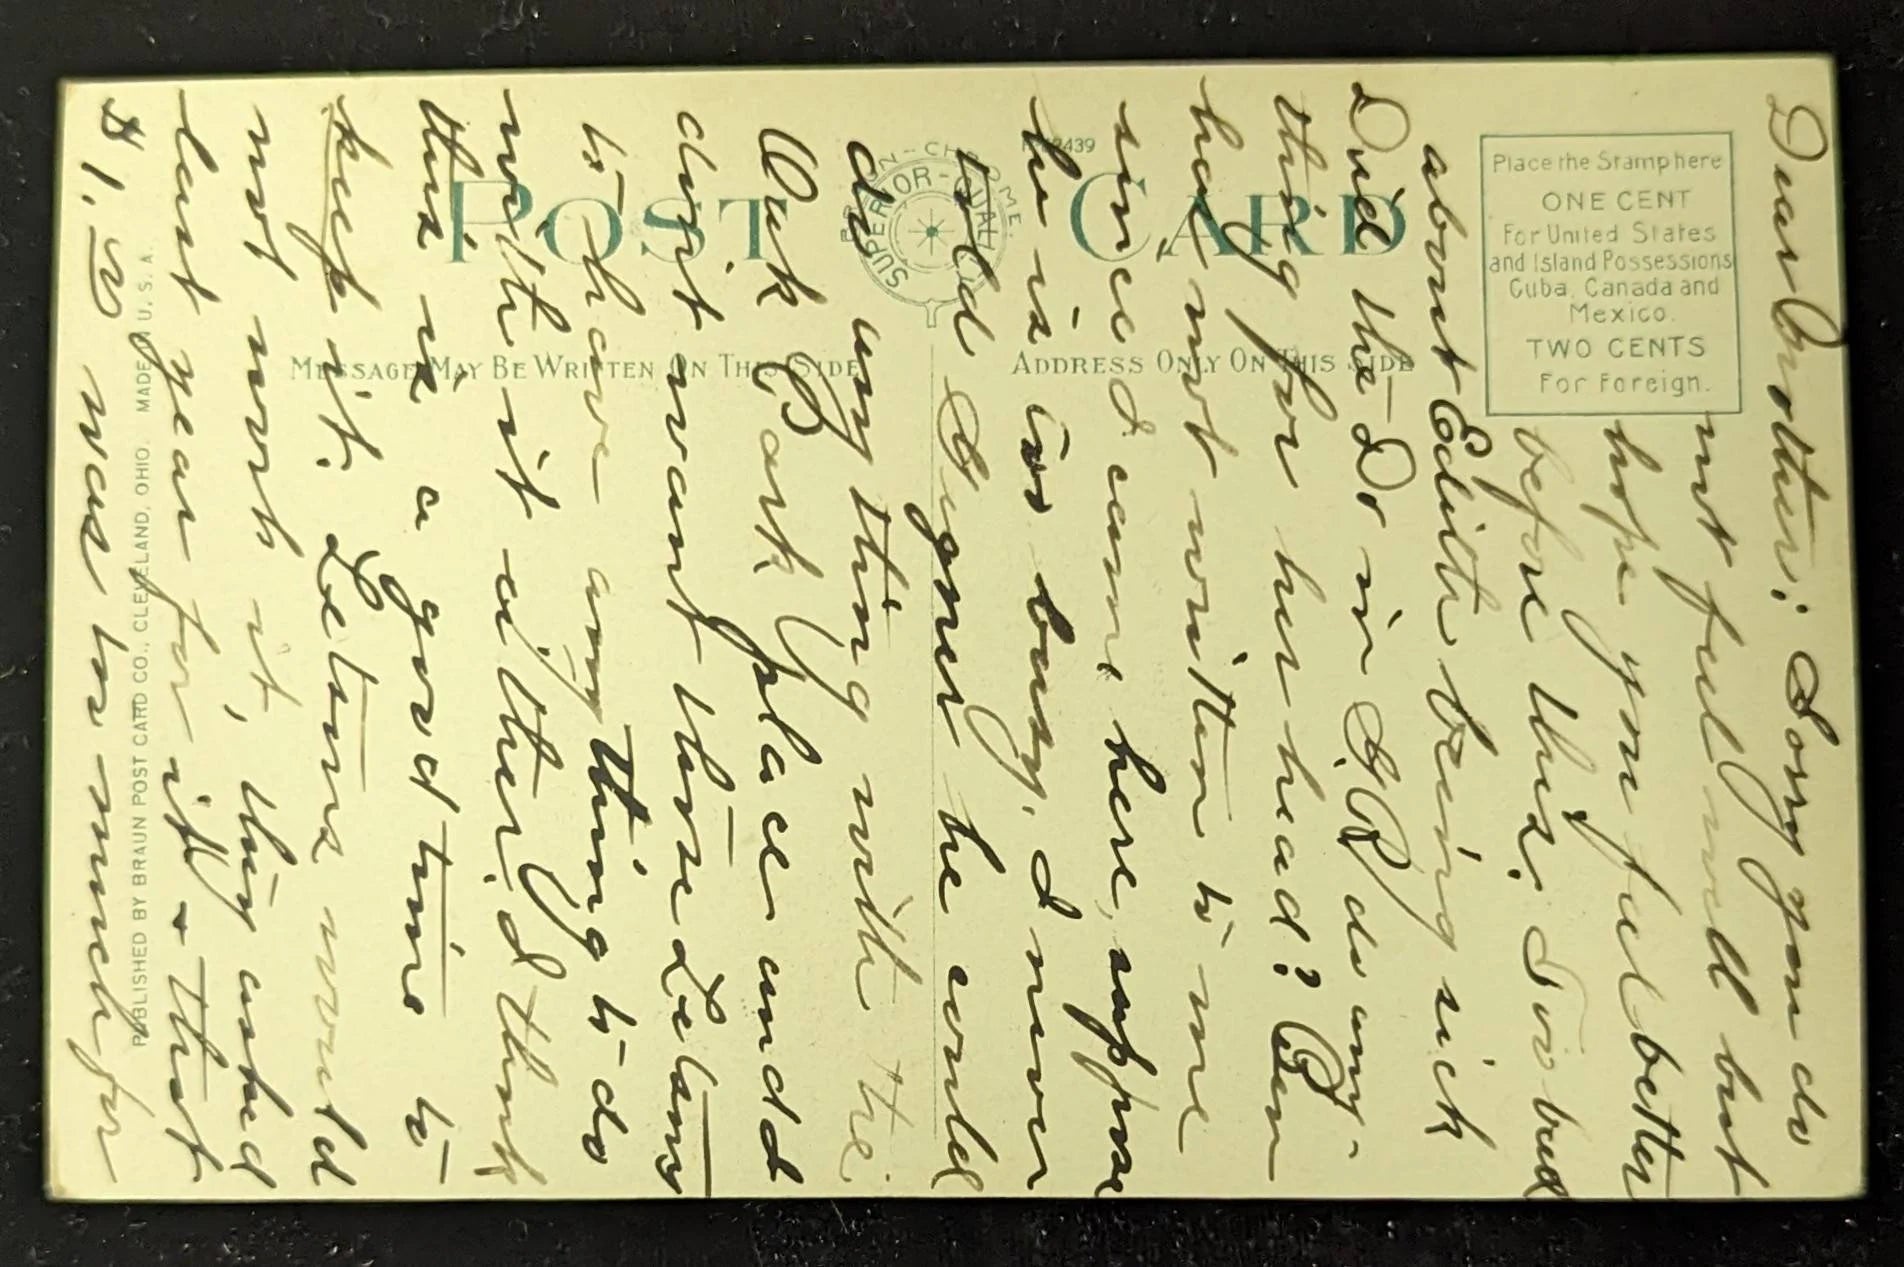 Dear brother: Sorry you do
not feel well but
hope you feel better
before this. Too bad
about Edith being sick
Did the Dr in G.R. do any-
thing for her head? Ben
has not written to me
since I came here, suppose
he is too busy. I never
told Gugner he could
do any thing with the
Oak Park place and
dont want those Letans
to have any thing to do
with it either. I think
this is a good time to
keep it. Letans would
not work it, they asked
last year for it & that
$1.20 was to much for
POST CARD
SUPERIOR-QUALITY
BRAUN-CHROME.
MESSAGE MAY BE WRITTEN ON THIS SIDE
ADDRESS ONLY ON THIS SIDE
Place the Stamp here
ONE CENT
For United States
and Island Possessions
Cuba, Canada and
Mexico.
TWO CENTS
For Foreign.
PUBLISHED BY BRAUN POST CARD CO., CLEVELAND, OHIO. MADE IN U. S. A.